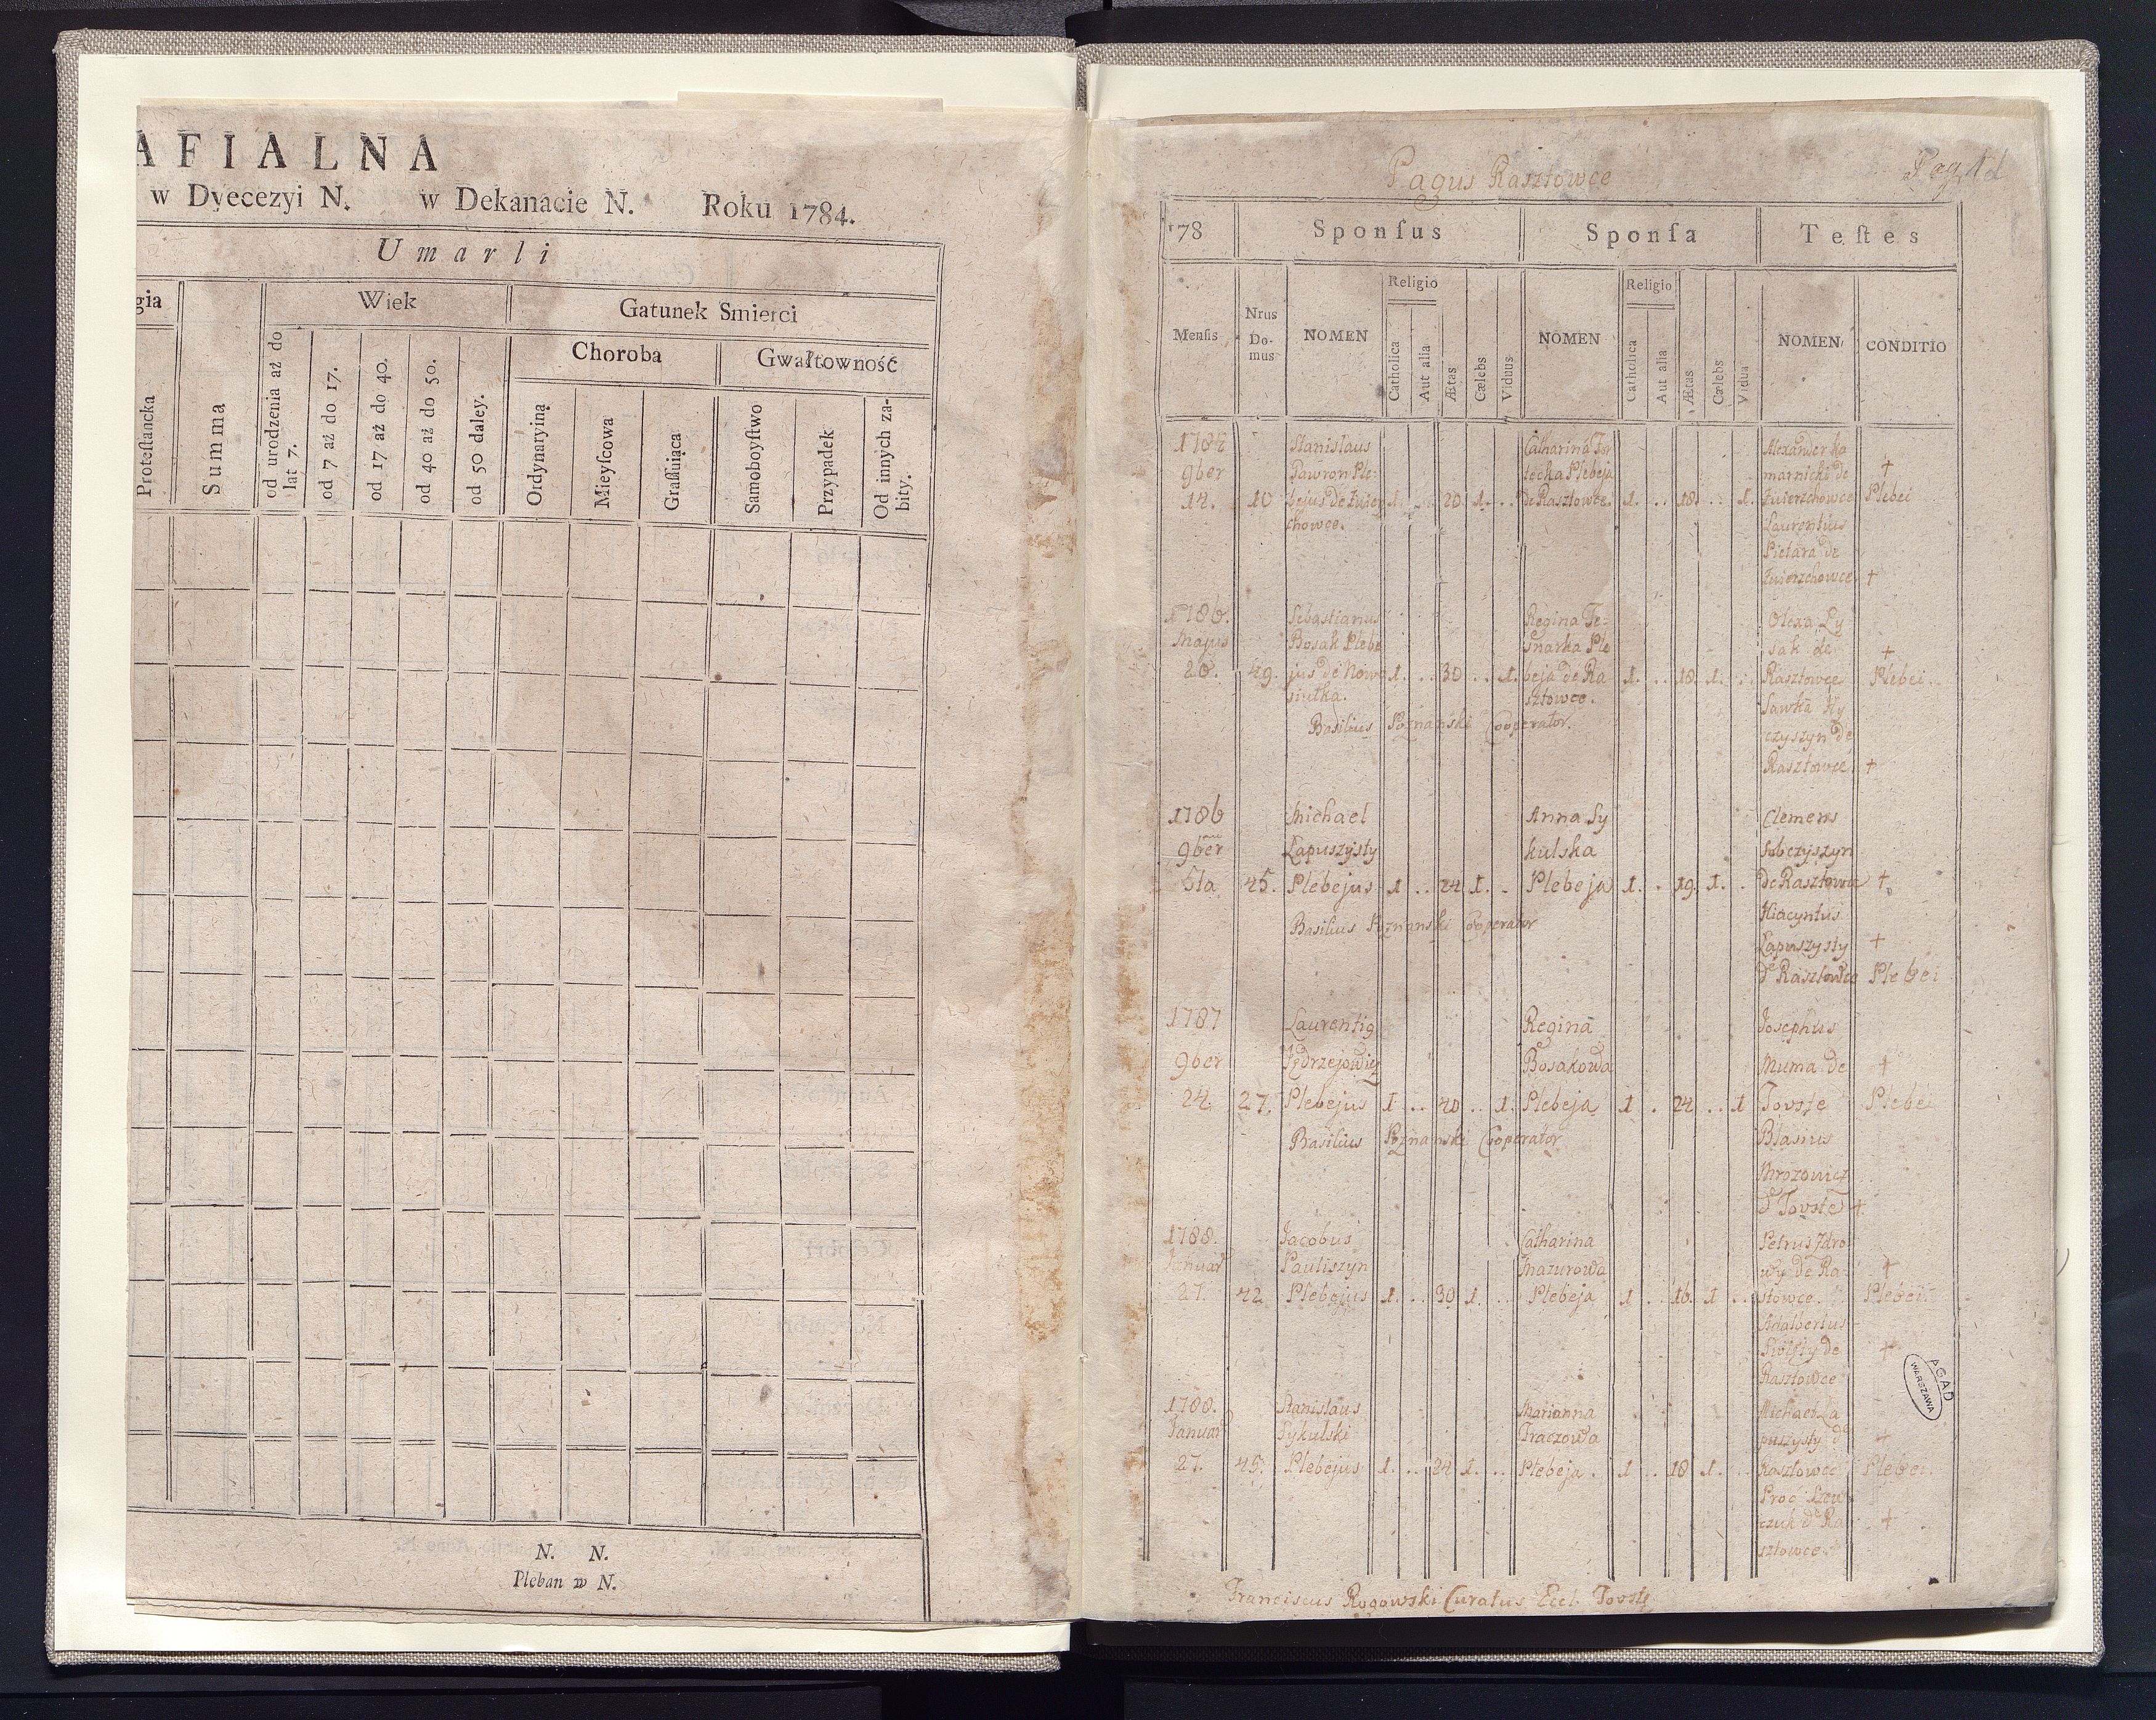 AFIALNA
w Dyecezyi N. w Dekanacie N. Roku 1784.
Umarli
gia
Wiek
Gatunek Smierci
Choroba
Gwałtowność
Proteſtancka
Summa
od urodzenia aż do
lat 7.
od 7 aż do 17.
od 17 aż do 40.
od 40 aż do 50.
od 50 daley.
Ordynaryiną
Mieyſcowa
Graſſuiąca
Samoboyſtwo
Przypadek
Od innych za-
bity.
N. N.
Pleban w N.
Pagus Rasztowce
178 Sponſus Sponſa Teſtes
Menſis
Nrus
Do-
mus
NOMEN
Religio
Catholica
Aut alia
Ætas
Cælebs
Viduus
NOMEN
Religio
Catholica
Aut alia
Ætas
Cælebs
Vidua
NOMEN
CONDITIO
1784 Stanislaus Catharina
9ber Gawron Ple- Plebeja marnicki de †
14. 10 bejus de Zwier 1 . . 20. 1. . . de Rasztowce. 1. . . 18. . . 1. Zwierzchowce Plebei
chowce. Laurentius
de
Zwierzchowce †
1786. Sebastianus Regina Olexa Ly
Majus Bosak Plebe Ple sak de †
20. 49. jus de Nowo 1. . . 30 . . 1. beja de Ra 1. . . 18. 1. . . Rasztowce Plebei.
siułka. sztowce. Sawka Hy
Basilius Poznanski Cooperator. czyszyn de
Rasztowce †
1786 Michael Anna Sy Clemens
9ber Łapuszysty kulska
5ta 45. Plebejus 1 . . 24 1. . Plebeja 1. . 19. 1. . de Rasztowce †
Basilius Poznanski Cooperator Hiacyntus
Łapuszysty †
de Rasztowce Plebei
1787 Laurentius Regina Josephus
9ber Jędrzejowicz Bosakowa Muma de †
24. 27. Plebejus 1 . . 40 . . 1. Plebeja 1 . 24 . . 1 Tovste Plebei
Basilius Poznanski Cooperator Blasius
Mrozowicz
d Tovste †
1788. Jacobus Catharina Petrus Zdro
Januar Pauliszyn Mazurowa wy de Ra- †
27. 42 Plebejus 1. . . 30 1. . . Plebeja 1 . . 16. 1 . . stowce. Plebei.
Adalbertus
de †
Rasztowce
1788. Stanislaus Marianna Michael La
Januar Sykulski Traczowa puszysty de †
27. 45. Plebejus 1. . . 24 1. . . Plebeja. 1 . . 18 1. . . Rasztowce Plebei.
czuk de Ra †
sztowce.
AGAD
WARSZAWA
Franciscus Rogowski Curatus Eccl. Tovste